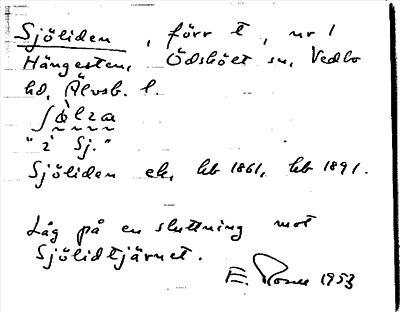 Sjöliden, förr t, nr 1
Hängesten, Ödsköet sn, Vedbo
hd, Älvsb. l.
"i Sj."
Sjöliden ek, hb 1861, hb 1891.
Låg på en sluttning mot
Sjölidtjärnet.
E. 1953